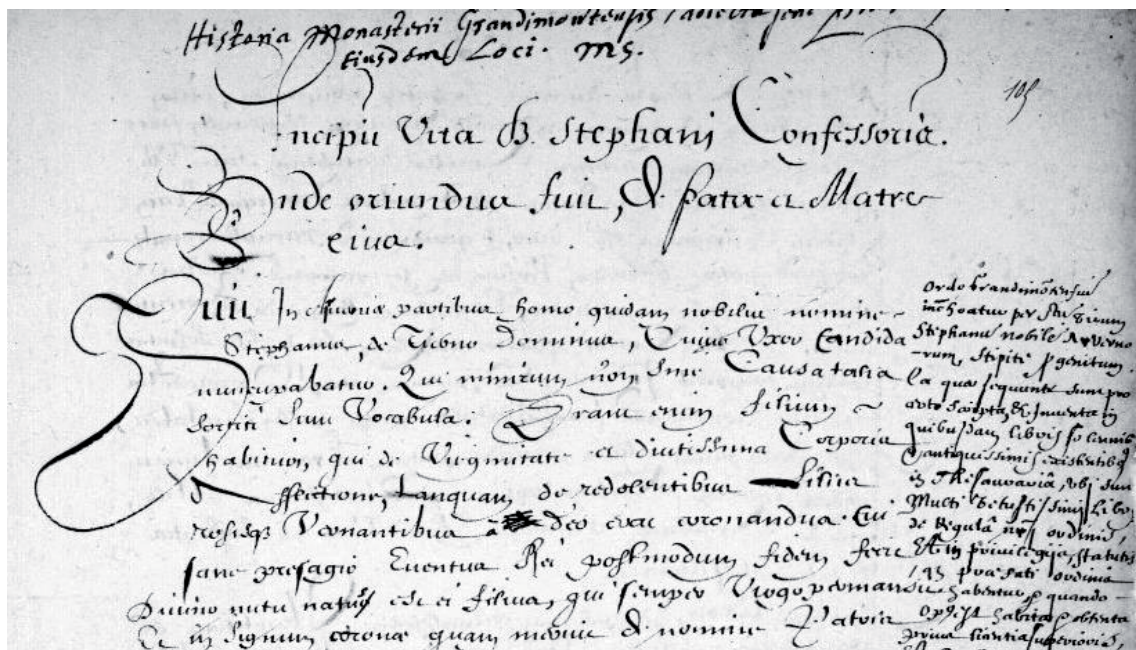 Historia Monasterii Grandimontensis
Eiusdem Loci. ms.
105
Incipit Vita B. Stephani Confessoris.
Vnde oriundus fuit, & patre et Matre
eius.
Fuit In partibus homo quidam nobilis nomine
Stephanus, de Tiberio Dominus, Cuius Vxor Candida
nuncupabatur. Qui nimirum non sine Causa talia
sortiti sunt Vocabula. Erant enim filium
habituri, qui de Virginitate et diutissima Corporis
Afflictione, tanquam de redolentibus Liliis
rosisq Vernantibus a deo erat coronandus. Cui
sane presagio Euentus Rei postmodum fidem
Diuino nutu natus est ei filius, qui semper Virgo
Et in signum corone quam meruit & nomine Patris
Ordo Grandimontensis
inchoatur per
Stephanu nobile Aruerno
rum, stipite progenitum.
la qua sequuntr sunt
scripta, & Inuenta in
quibusdam libris solemnib
antiquissimis existentibq
in Thesauraria, vbi sunt
Multi Vetustissimi Libri
de Regulâ nri ordinis,
Etiam priuilegia, statutis
prafati ordinis
habentur quando
habita obtenta
prius licentia superioris,